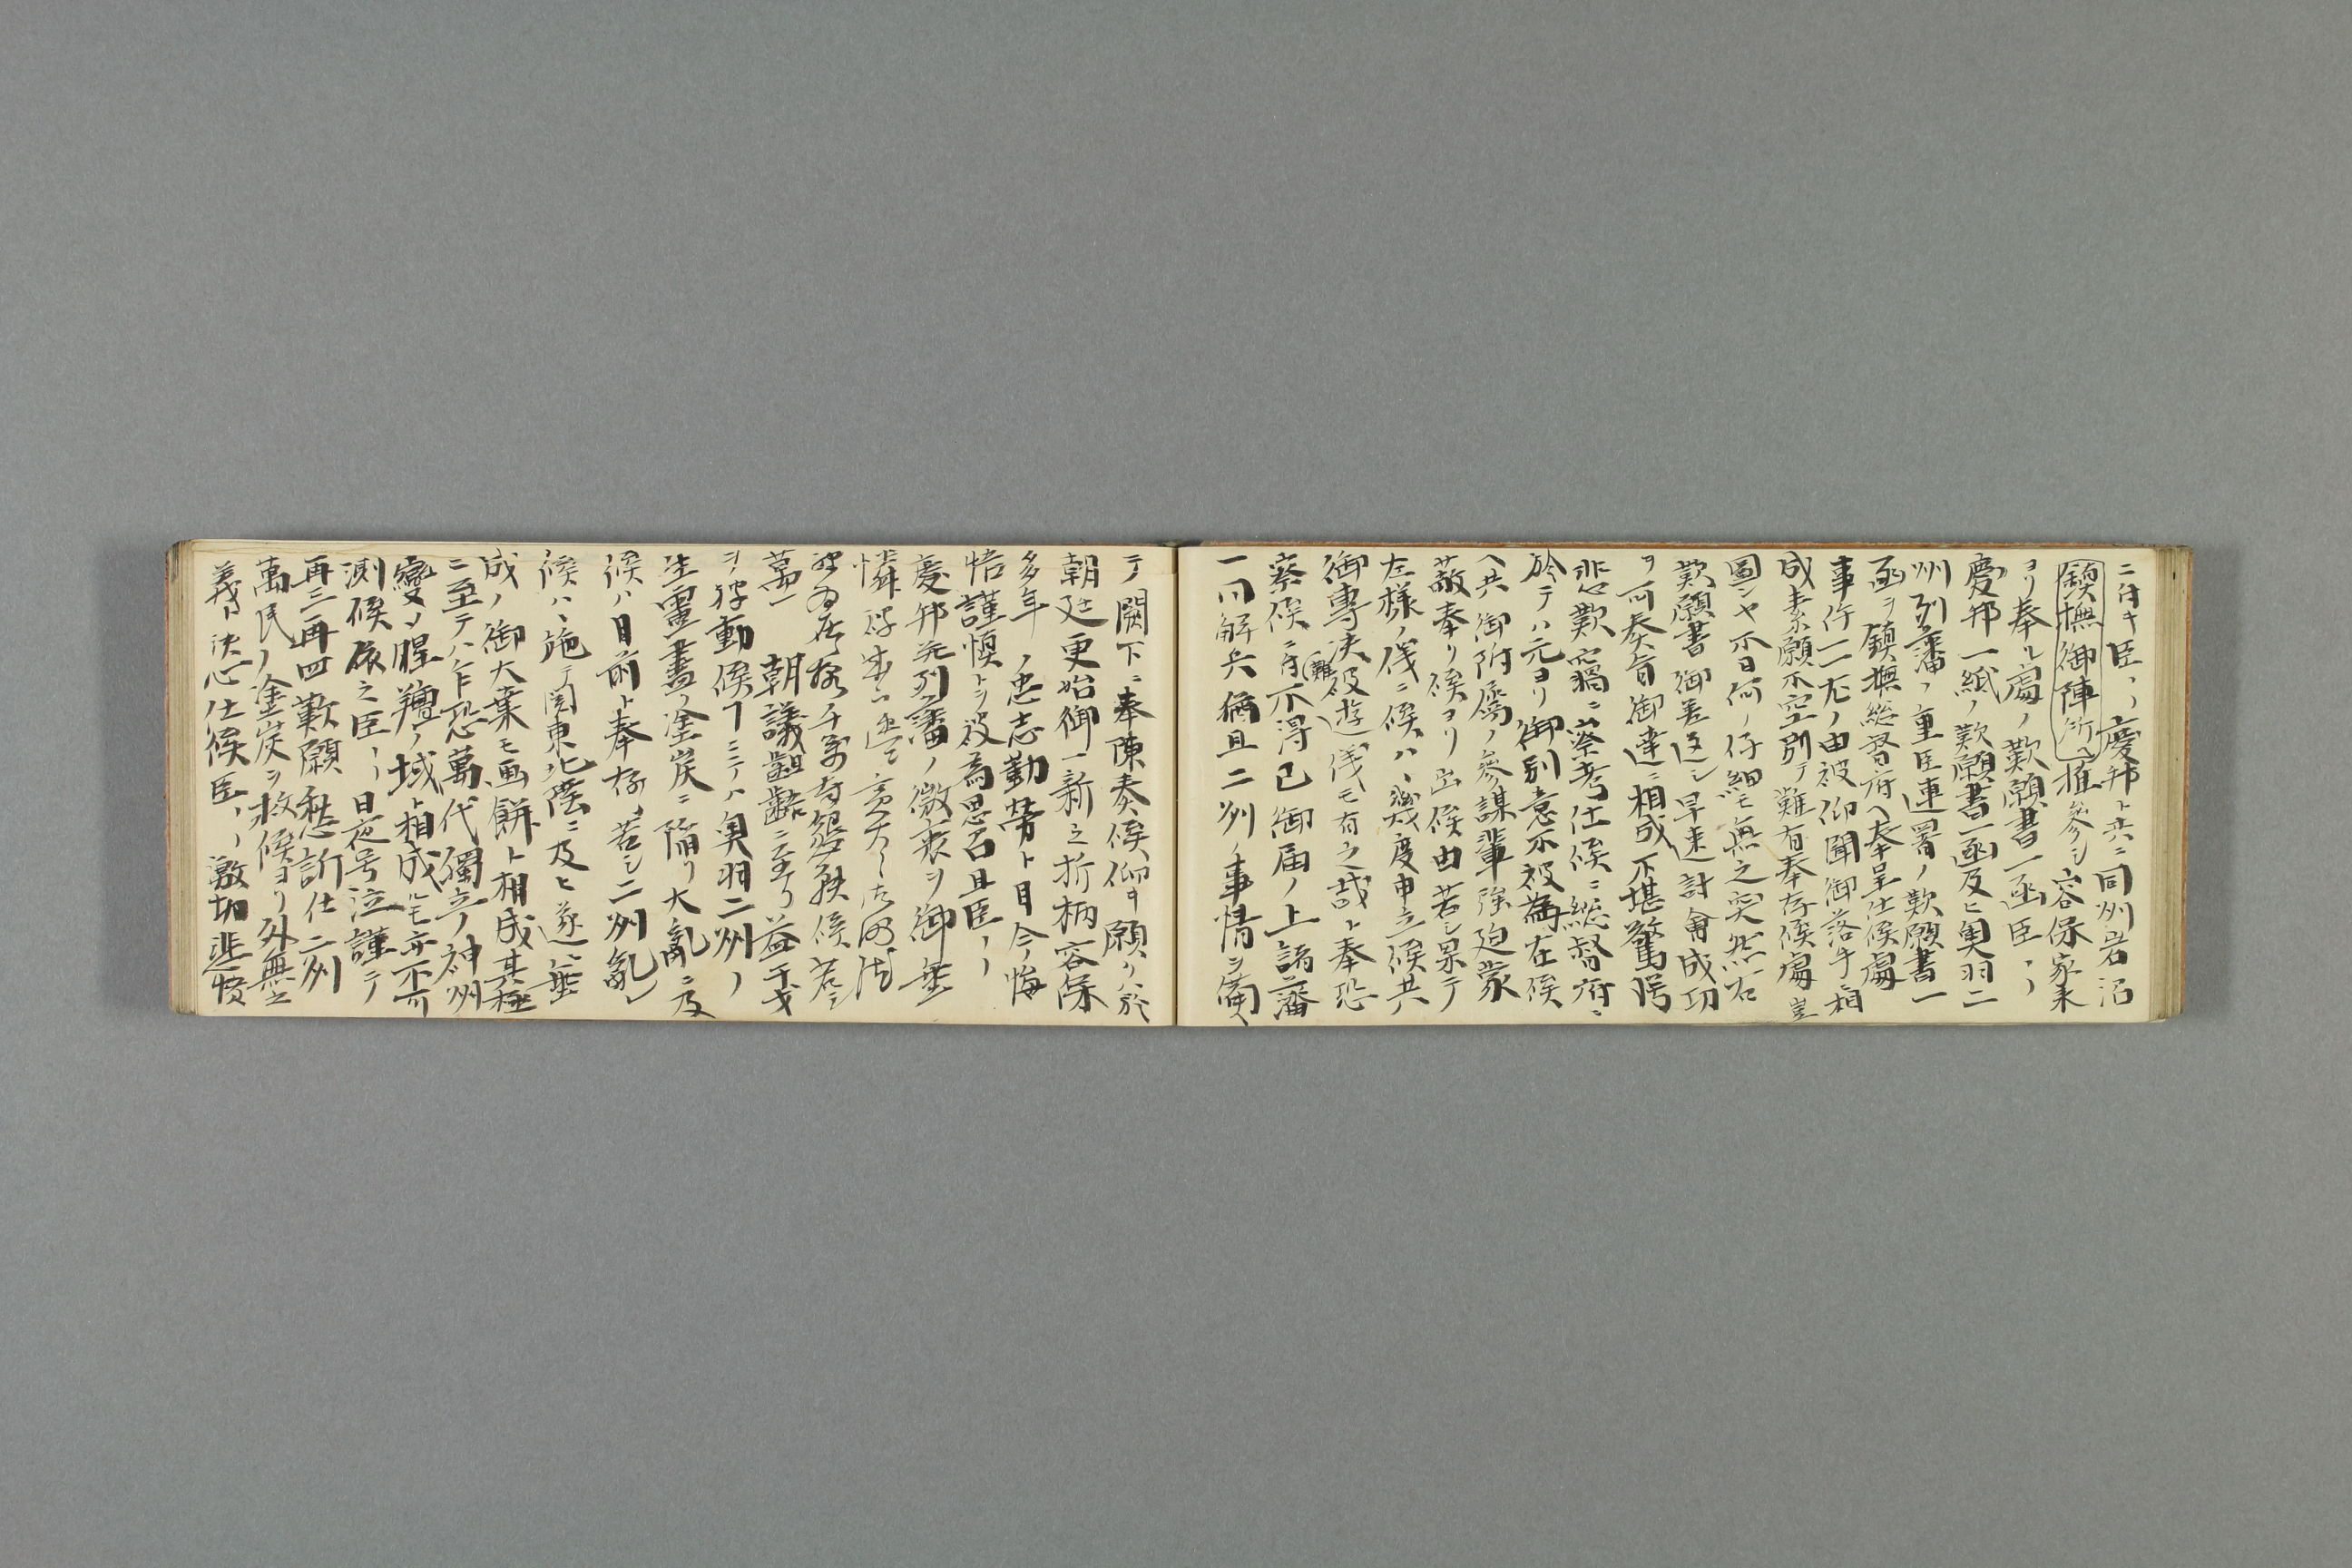 ニ付キ臣〻慶邦ト共ニ同州岩沼
鎮撫御陣所ヘ推參シ容保家来
ヨリ奉ル處ノ歎願書一函臣〻
慶邦一紙ノ歎願書一函及ヒ奥羽二
州列藩ノ重臣連署ノ歎願書一
函ヲ鎮撫総督府ヘ奉呈仕候處
事件一一尤ノ由被仰聞御落手ニ相
成素願不空別テ難有奉存候處豈
圖シヤ不日何ノ仔細モ無之突然右
歎願書御差返シ早速討會成功
ヲ可奏旨御達ニ相成不堪驚愕
悲歎竊ニ深考仕候ニ総督府ニ
於テハ元ヨリ御別意不被為在候
ヘ共御附屬ノ參謀輩強迫蒙
蔽奉リ候ヨリ出候由若シ果テ
左様ノ儀ニ候ハ丶幾度申立候共
御專決難被遊儀モ有之哉ト奉恐
察候ニ付不得已御届ノ上諸藩
一同解兵猶且二州ノ事情ヲ備ヘ
テ闕下ニ奉陳奏候仰キ願クハ於
朝廷更始御一新之折柄容保
多年ノ忠志勤労ト目今ノ悔
悟謹慎トヲ被為思召且臣〻
慶邦並列藩ノ微衷ヲ御垂
憐
萬一朝議齟齬ニ至リ益干戈
ヲ被動候ヿニテハ奥羽二州ノ
生靈盡ク塗炭ニ陥リ大亂ニ及
候ハ目前ト奉存候若シ二州亂レ
候ハ丶施テ関東北陸ニ及ヒ遂ニ垂
成ノ御大業モ画餅ト相成其極
ニ至テハ乍恐萬代獨立ノ神州
變シ腥羶ノ域ト相成ルモ亦不可
測候依之臣〻日夜号泣謹テ
再三再四歎願愁訴仕二州
萬民ノ塗炭ヲ救候ヨリ外無之
義ト決心仕候臣〻激切悲憤